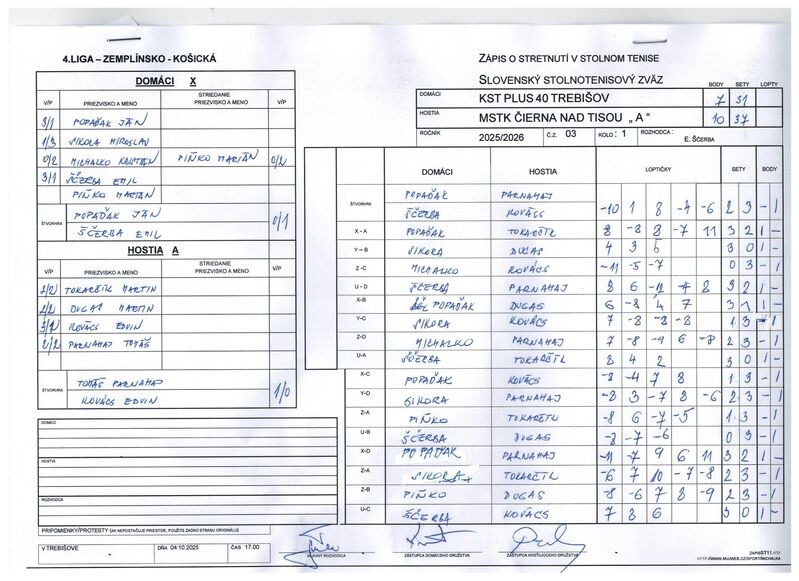 4.LIGA – ZEMPLÍNSKO - KOŠICKÁ
ZÁPIS O STRETNUTÍ V STOLNOM TENISE
SLOVENSKÝ STOLNOTENISOVÝ ZVÄZ
BODY SETY LOPTY
DOMÁCI KST PLUS 40 TREBIŠOV 7 31
HOSTIA MSTK ČIERNA NAD TISOU „ A “ 10 37
ROČNÍK 2025/2026 Č.Z. 03 KOLO : 1 ROZHODCA : E. ŠČERBA
DOMÁCI X
V/P PRIEZVISKO A MENO STRIEDANIE PRIEZVISKO A MENO V/P
3/1 POPAĎAK JÁN
1/3 SIKORA MIROSLAV
0/2 MICHALKO KRISTIÁN PIŇKO MARIÁN 0/2
3/1 ŠČERBA EMIL
PIŇKO MARIÁN
ŠTVORHRA POPAĎAK JÁN 0/1
ŠČERBA EMIL
HOSTIA A
V/P PRIEZVISKO A MENO STRIEDANIE PRIEZVISKO A MENO V/P
2/2 TOKARČÍK MARTIN
2/2 DUGAS MARTIN
3/1 KOVÁCS EDVIN
2/2 PARNAHAJ TOMÁŠ
ŠTVORHRA TOMÁŠ PARNAHAJ 1/0
KOVÁCS EDVIN
DOMÁCI
HOSTIA
ROZHODCA
PRIPOMIENKY/PROTESTY (AK NEPOSTAČUJE PRIESTOR, POUŽITE ZADNÚ STRANU ORIGINÁLU)
V TREBIŠOVE DŇA 04.10.2025 ČAS 17.00
DOMÁCI HOSTIA LOPTIČKY SETY BODY
ŠTVORHRA POPAĎAK PARNAHAJ
ŠČERBA KOVÁCS -10 1 8 -4 -6 2 3 - 1
X - A POPAĎAK TOKARČÍK 8 -8 8 -7 11 3 2 1 -
Y – B SIKORA DUGAS 4 3 5 3 0 1 -
Z -C MICHALKO KOVÁCS -11 -5 -7 0 3 - 1
U - D ŠČERBA PARNAHAJ 8 6 3 2 1 -
X-B POPAĎAK DUGAS 6 -8 4 7 3 1 1 -
Y-C SIKORA KOVÁCS 7 -8 -8 -8 1 3 - 1
Z-D MICHALKO PARNAHAJ 7 -8 -9 6 -8 2 3 - 1
U-A ŠČERBA TOKARČÍK 8 4 2 3 0 1 -
X-C POPAĎAK KOVÁCS -8 -4 7 8 1 3 - 1
Y-D SIKORA PARNAHAJ -8 3 -7 8 -6 2 3 - 1
Z-A PIŇKO TOKARČÍK -8 6 -7 -5 1 3 - 1
U-B ŠČERBA DUGAS -8 -7 -6 0 3 - 1
X-D POPAĎAK PARNAHAJ -11 -7 9 6 11 3 2 1 -
Z-A SIKORA TOKARČÍK -6 7 10 -7 -8 2 3 - 1
Z-B PIŇKO DUGAS -8 -6 7 8 -9 2 3 - 1
U-C ŠČERBA KOVÁCS 7 8 6 3 0 1 -
HLAVNÝ ROZHODCA ZÁSTUPCA DOMÁCEHO DRUŽSTVA ZÁSTUPCA HOSŤUJÚCEHO DRUŽSTVA
ZAPISST11.RTF
HTTP://WWW.MUJWEB.CZ/SPORT/MICHALKA